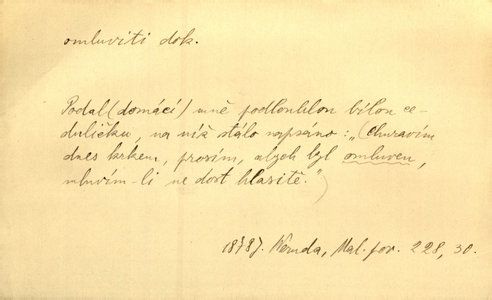 omluviti dok.
Podal (domácí) mně podlouhlou bílou ce-
duličku, na níž stálo napsáno: „(Churavím
dnes krkem, prosím, abych byl omluven,
mluvím-li ne dost hlasitě.")
1878. Neruda, Mal. pov. 228, 30.